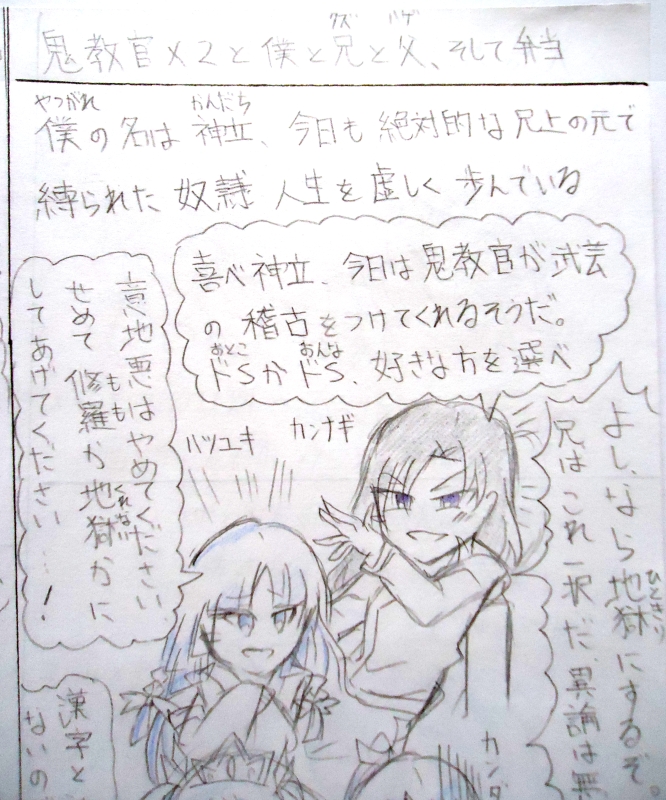 クズ ハゲ
鬼教官×2と僕と兄と父、そして弁当
やつがれ かんだち
僕の名は神立、今日も絶対的な兄上の元で
縛られた奴隷人生を虚しく歩んでいる
喜べ神立、今日は鬼教官が武芸
の稽古をつけてくれるそうだ。
おとこ おんな
ドSかドS、好きな方を選べ
よし、なら地獄にするぞ
兄はこれ一択だ、異論は無
意地悪はやめてください
もも くれない
せめて修羅か地獄かに
してあげてください…!
カンナギ
ハツユキ
カンダ
漢字と
ないの